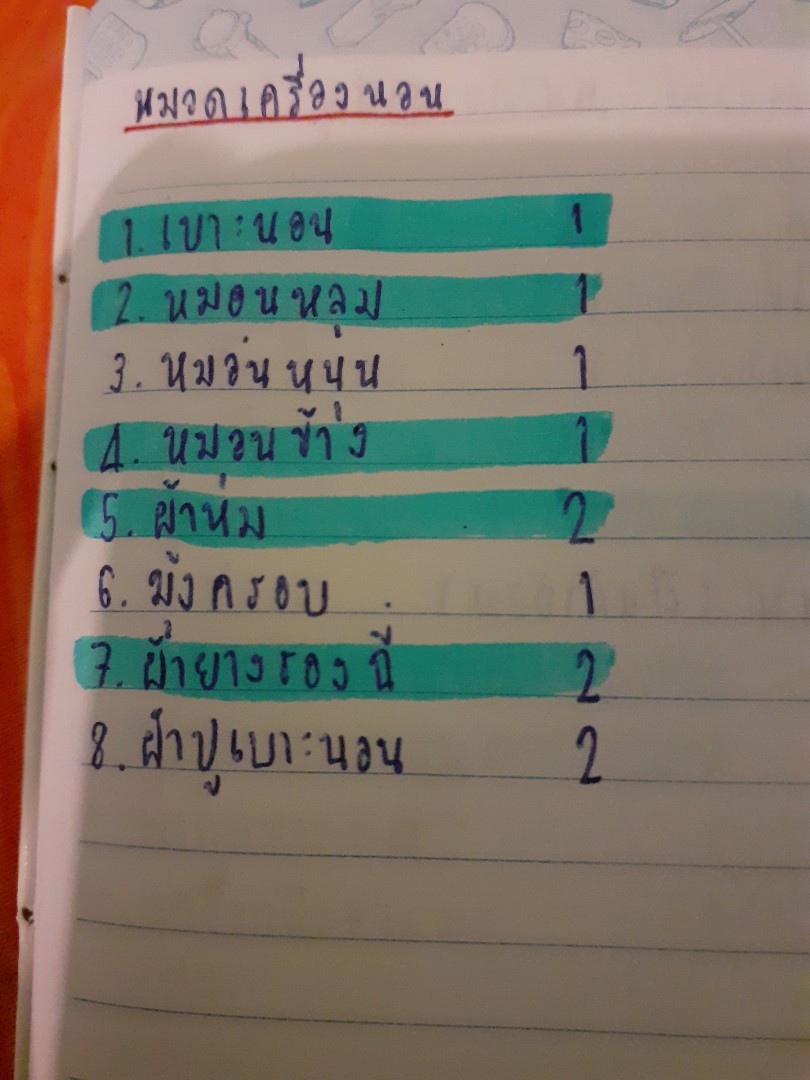 หมวดเครื่องนอน
1. เบาะนอน 1
2. หมอนหลุม 1
3. หมอนหนุน 1
4. หมอนข้าง 1
5. ผ้าห่ม 2
6. มุ้งครอบ 1
7. ผ้ายางรองฉี่ 2
8. ผ้าปูเบาะนอน 2